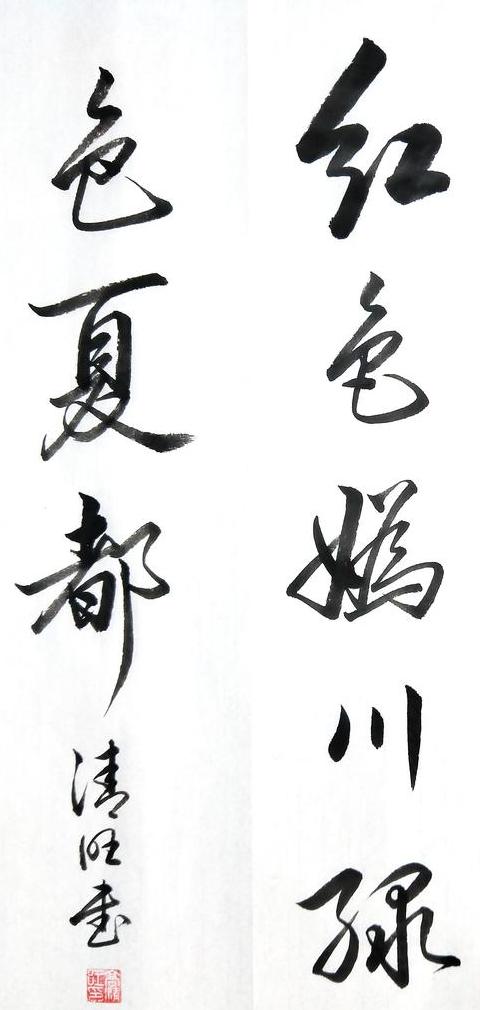 红色妫川绿
色夏都
清旺书